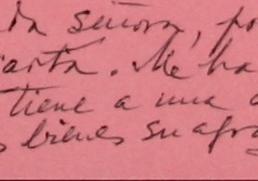 da señora, po
carta. Me ha
tiene a una
s bienes su afro